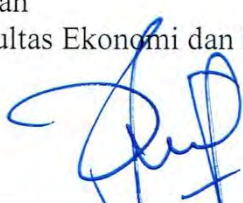 an
ultas Ekonomi dan